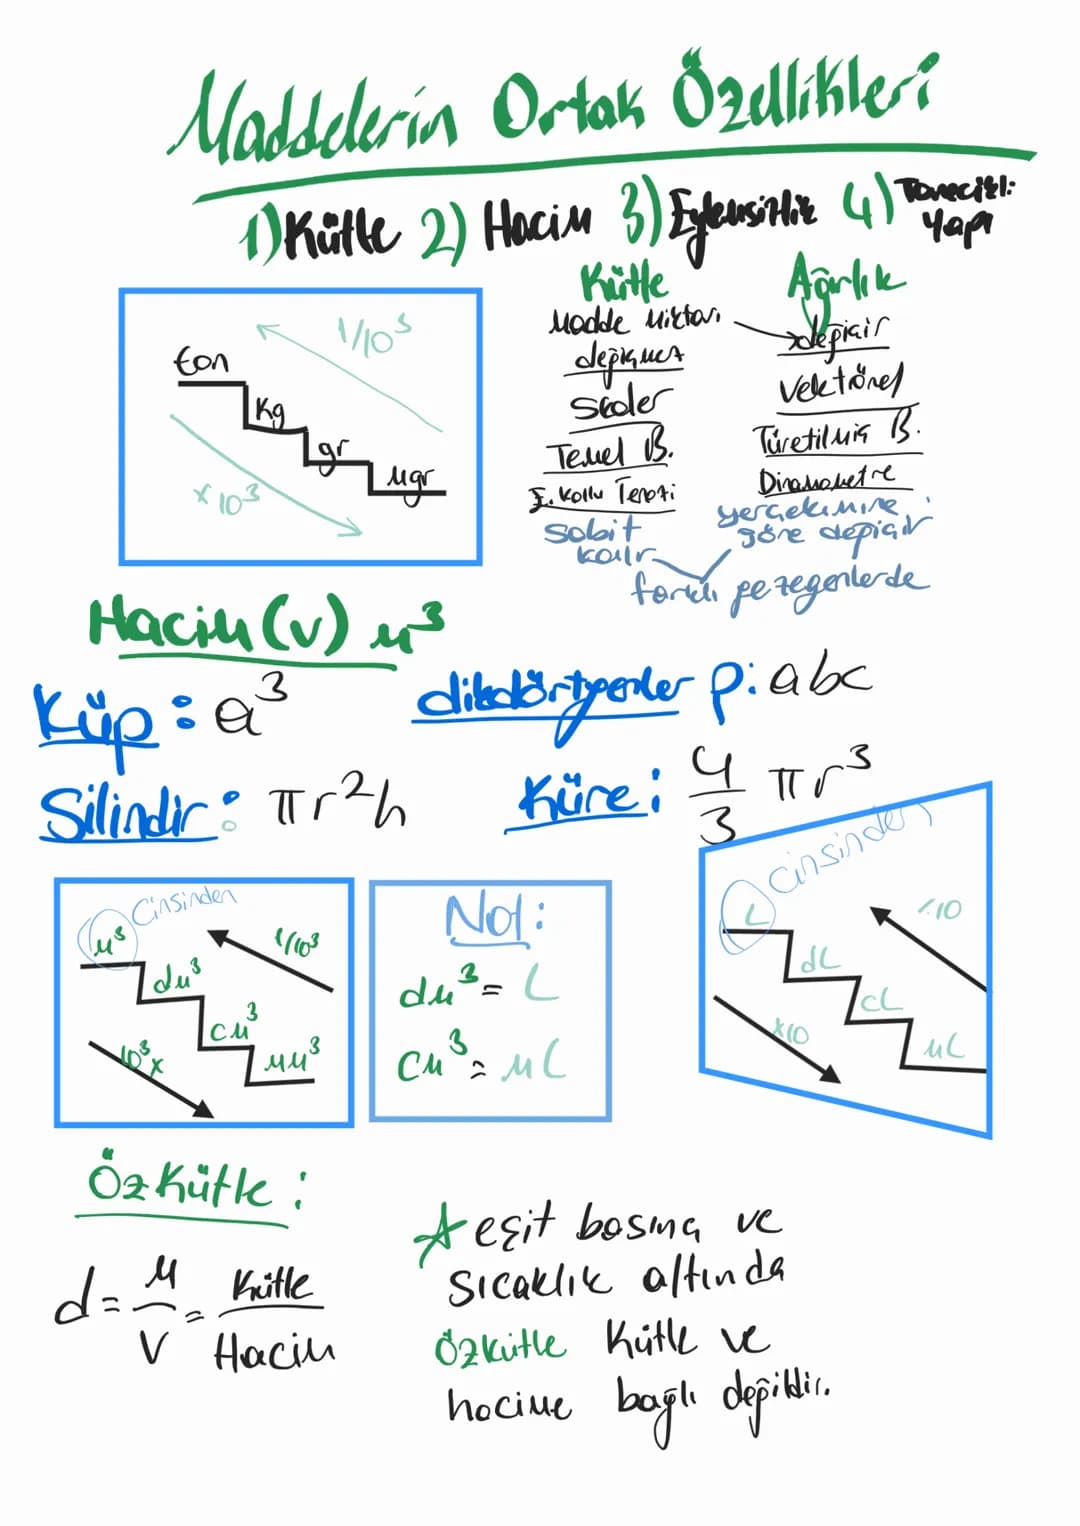 Maddelerin Ortak Özellikleri
1) Kütle 2) Hacim 3) Eylemsizlik 4) Tanecikli Yapı
ton
kg
gr
mgr
1/10³
x 10³
Kütle
Madde Miktarı
değişmez
Skaler
Temel B.
E. kollu Terazi
sabit kalır
Ağırlık
değişir
Vektörel
Türetilmiş B.
Dinamometre
yerçekimine göre değişir
farklı gezegenlerde
Hacim (v) m³
Küp : a³
dikdörtgenler p: abc
Silindir : πr²h
Küre : 4/3 πr³
m³ cinsinden
dm³
cm³
mm³
1/10³
10³x
Not:
dm³ = L
cm³ = mL
L cinsinden
dL
cL
mL
/.10
x10
Özkütle :
d = m/V = Kütle/Hacim
eşit basınç ve
sıcaklık altında
özkütle kütle ve
hacime bağlı değildir.